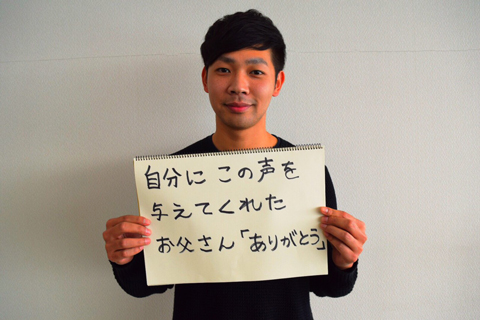 自分に この声を
与えてくれた
お父さん「ありがとう」